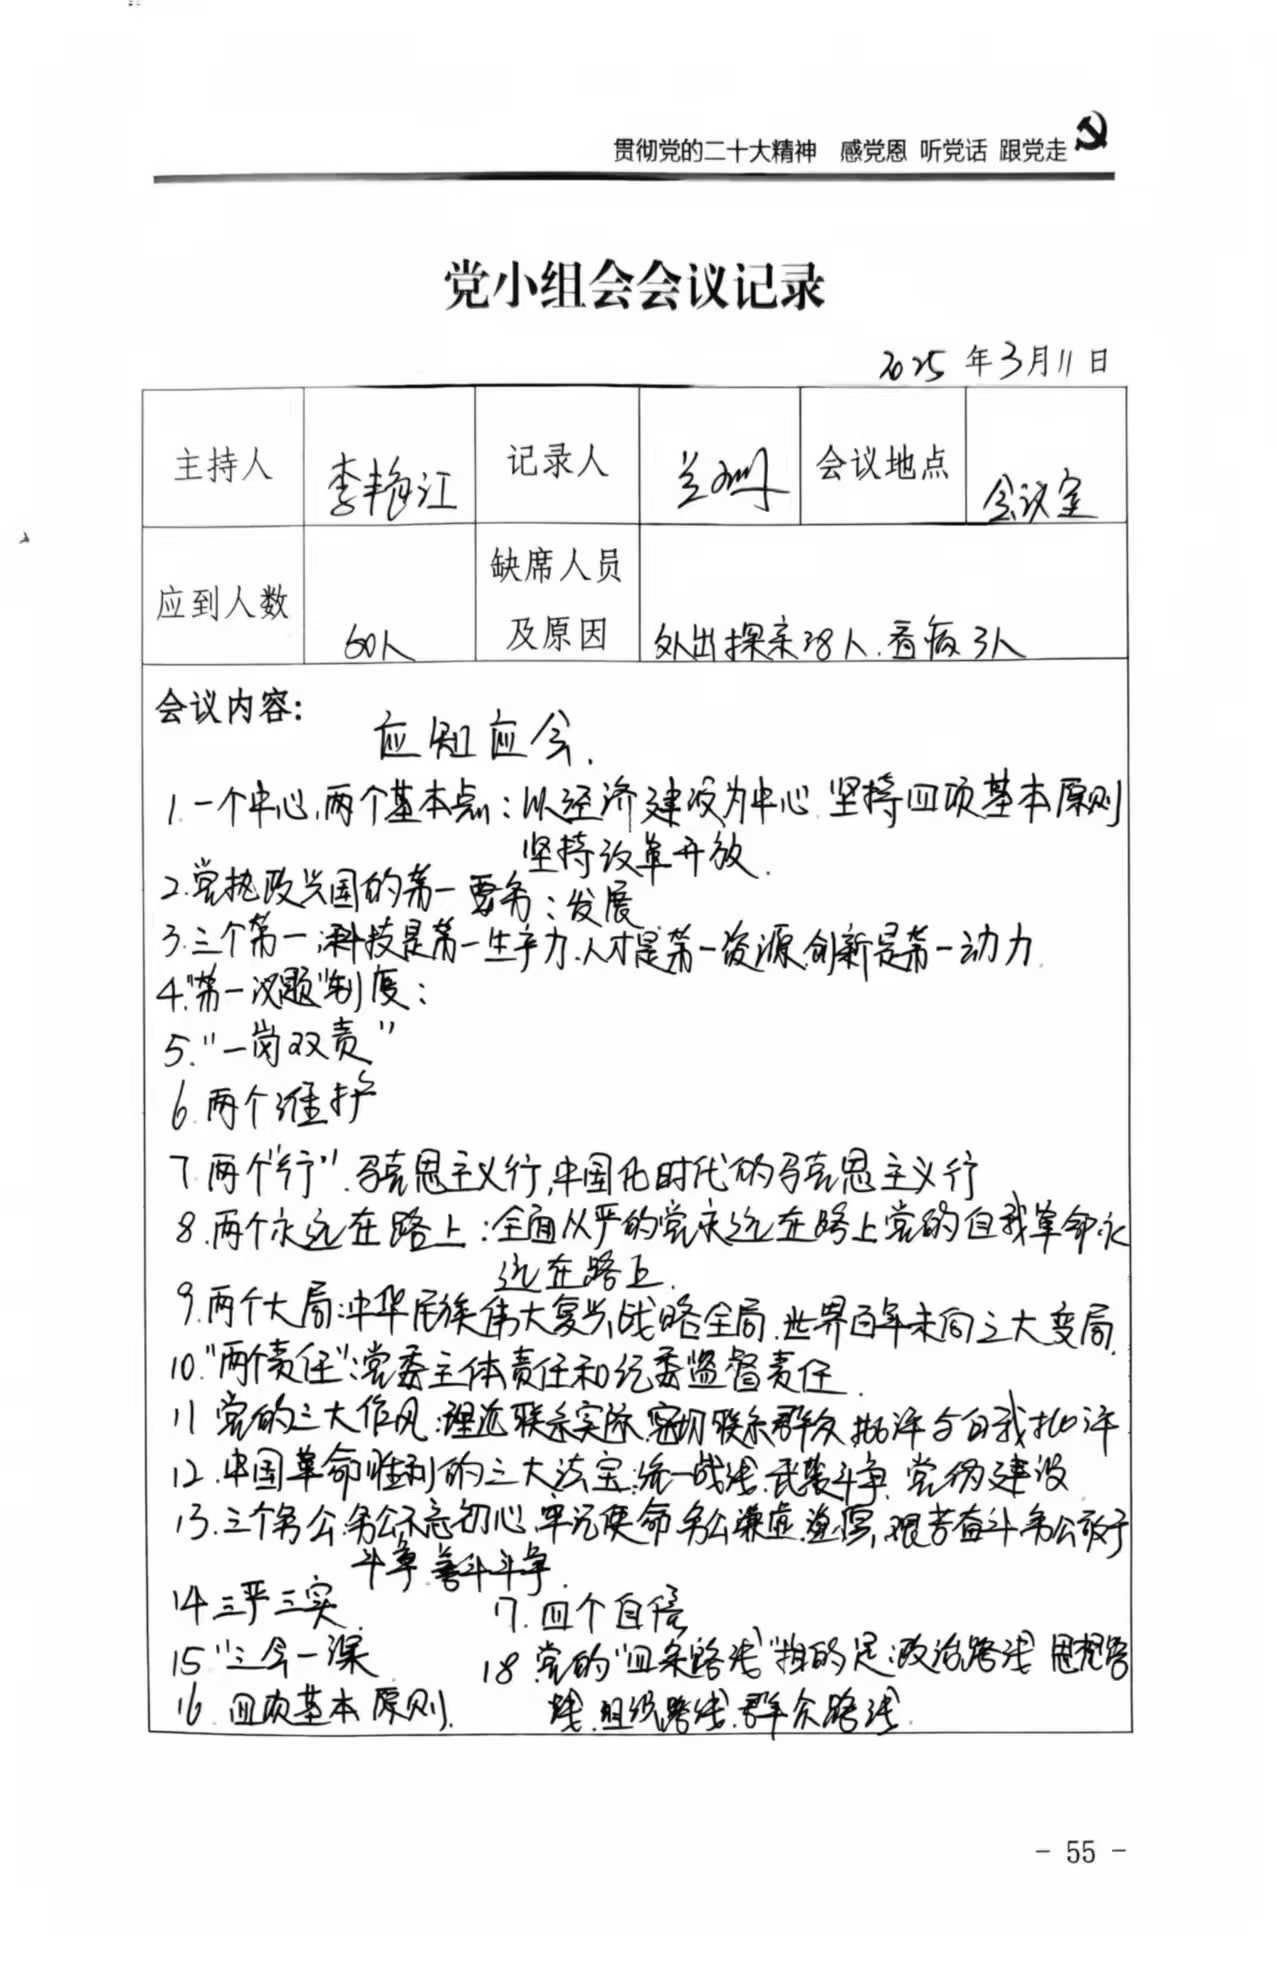 贯彻党的二十大精神 感党恩 听党话 跟党走
党小组会会议记录
2025 年 3 月 11 日
主持人 李艳江 记录人 兰 会议地点 会议室
应到人数 60人 缺席人员及原因 外出探亲38人.看病3人
会议内容:
应知应会.
1.一个中心,两个基本点:以经济建设为中心.坚持四项基本原则
坚持改革开放.
2.党执政兴国的第一要务:发展.
3.三个第一:科技是第一生产力.人才是第一资源.创新是第一动力.
4."第一议题"制度:
5."一岗双责"
6.两个维护
7.两个"行".马克思主义行,中国化时代的马克思主义行
8.两个永远在路上:全面从严的党永远在路上党的自我革命永
远在路上.
9.两个大局:中华民族伟大复兴战略全局.世界百年未有之大变局.
10."两个责任":党委主体责任和纪委监督责任.
11.党的三大作风:理论联系实际.密切联系群众.批评与自我批评
12.中国革命胜利的三大法宝:统一战线.武装斗争.党的建设
13.三个务必:务必不忘初心.牢记使命 务必谦虚.谨慎,艰苦奋斗 务必敢于
斗争.善斗斗争.
14.三严三实.
17.四个自信
15."三会一课
18.党的"四条路线"指的是:政治路线 思想路
16.四项基本原则.
线.组织路线.群众路线.
- 55 -